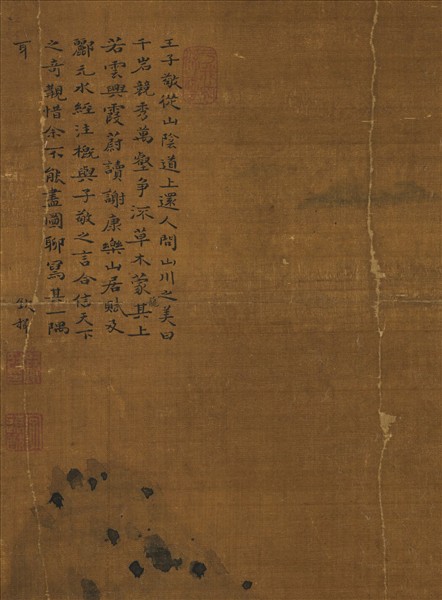 王子敬從山陰道上還人問山川之美曰
千岩競秀萬壑争流草木蒙其上
若雲興霞蔚讀謝康樂山居賦及
酈元水經注概與子敬之言合信天下
之奇觀惜余不能盡圖聊寫其一隅
耳